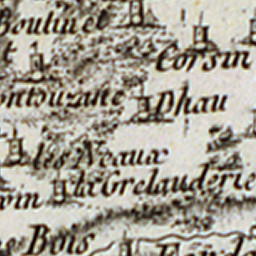 Boulinet
t
Corsin
ontouzane
Dhau
les Neaux
la Grelauderie
vin
e Bois